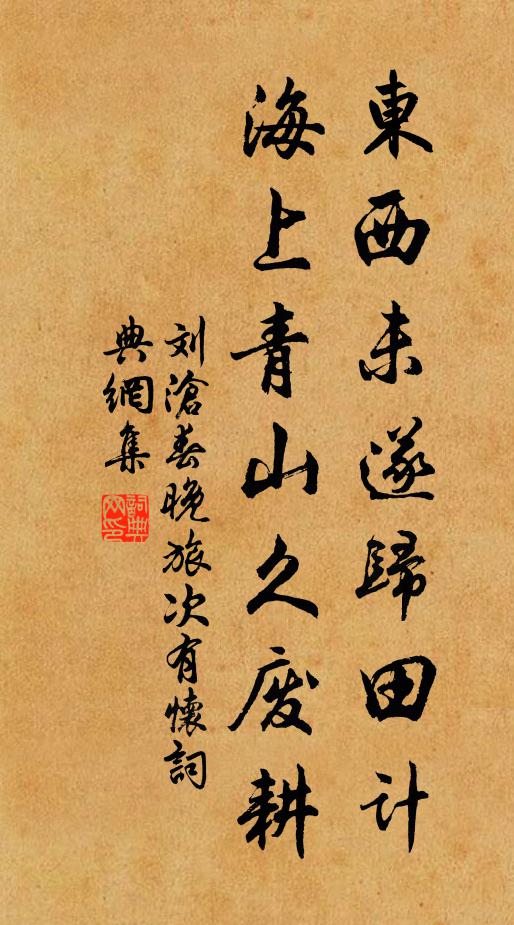 東西未遂歸田計
海上青山久废耕
刘滄春晚旅次有懷詞
典網集
詞典
网印